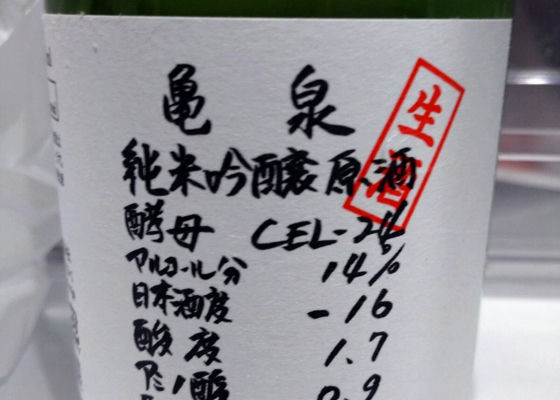 亀泉
純米吟醸原酒
生酒
酵母 CEL-24
アルコール分 14%
日本酒度 -16
酸度 1.7
アミノ酸 0.9